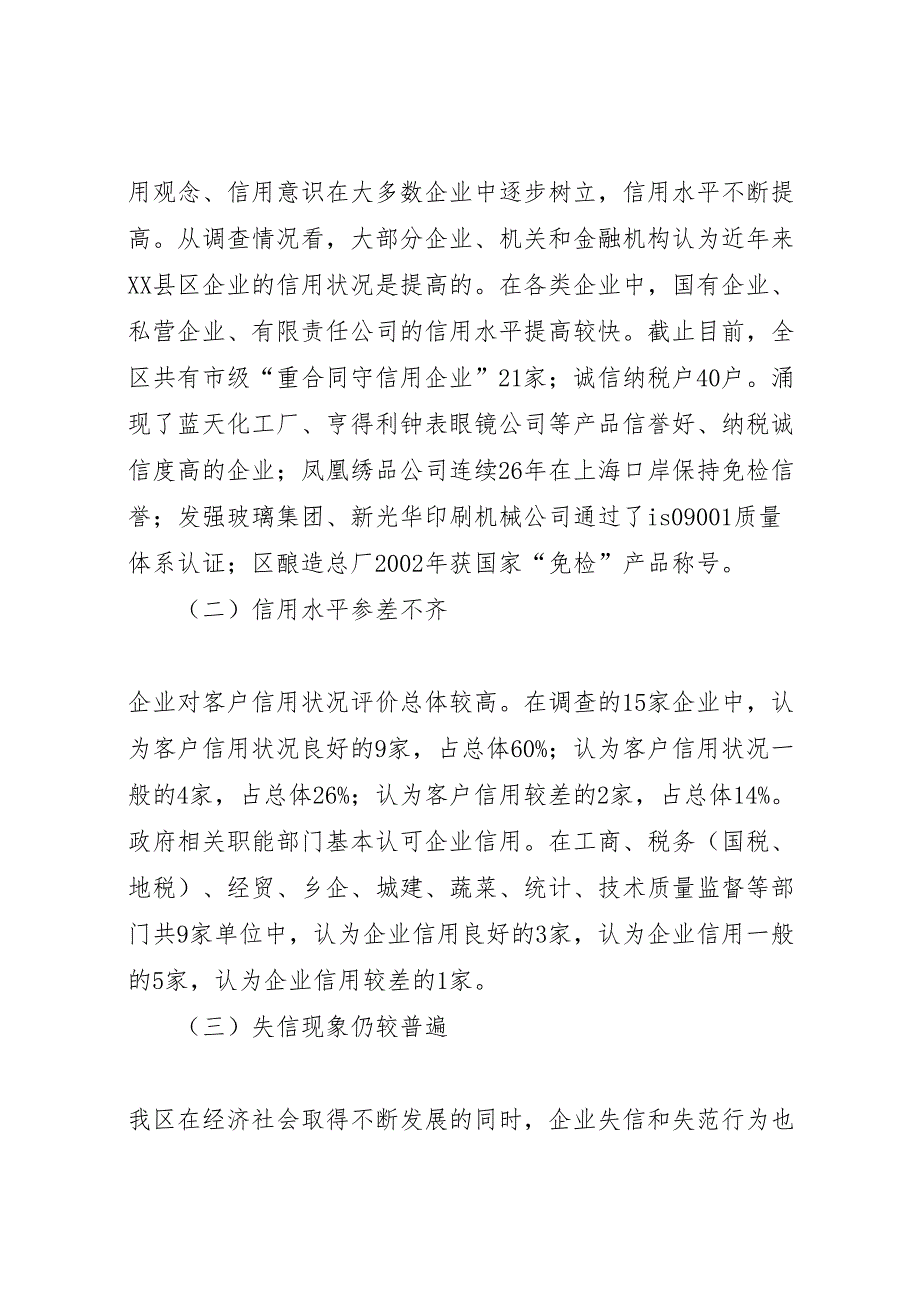 用观念、信用意识在大多数企业中逐步树立，信用水平不断提
高。从调查情况看，大部分企业、机关和金融机构认为近年来
XX县区企业的信用状况是提高的。在各类企业中，国有企业、
私营企业、有限责任公司的信用水平提高较快。截止目前，全
区共有市级“重合同守信用企业”21家；诚信纳税户40户。涌
现了蓝天化工厂、亨得利钟表眼镜公司等产品信誉好、纳税诚
信度高的企业；凤凰绣品公司连续26年在上海口岸保持免检信
誉；发强玻璃集团、新光华印刷机械公司通过了is09001质量
体系认证；区酿造总厂2002年获国家“免检”产品称号。
（二）信用水平参差不齐
企业对客户信用状况评价总体较高。在调查的15家企业中，认
为客户信用状况良好的9家，占总体60%；认为客户信用状况一
般的4家，占总体26%；认为客户信用较差的2家，占总体14%。
政府相关职能部门基本认可企业信用。在工商、税务（国税、
地税）、经贸、乡企、城建、蔬菜、统计、技术质量监督等部
门共9家单位中，认为企业信用良好的3家，认为企业信用一般
的5家，认为企业信用较差的1家。
（三）失信现象仍较普遍
我区在经济社会取得不断发展的同时，企业失信和失范行为也